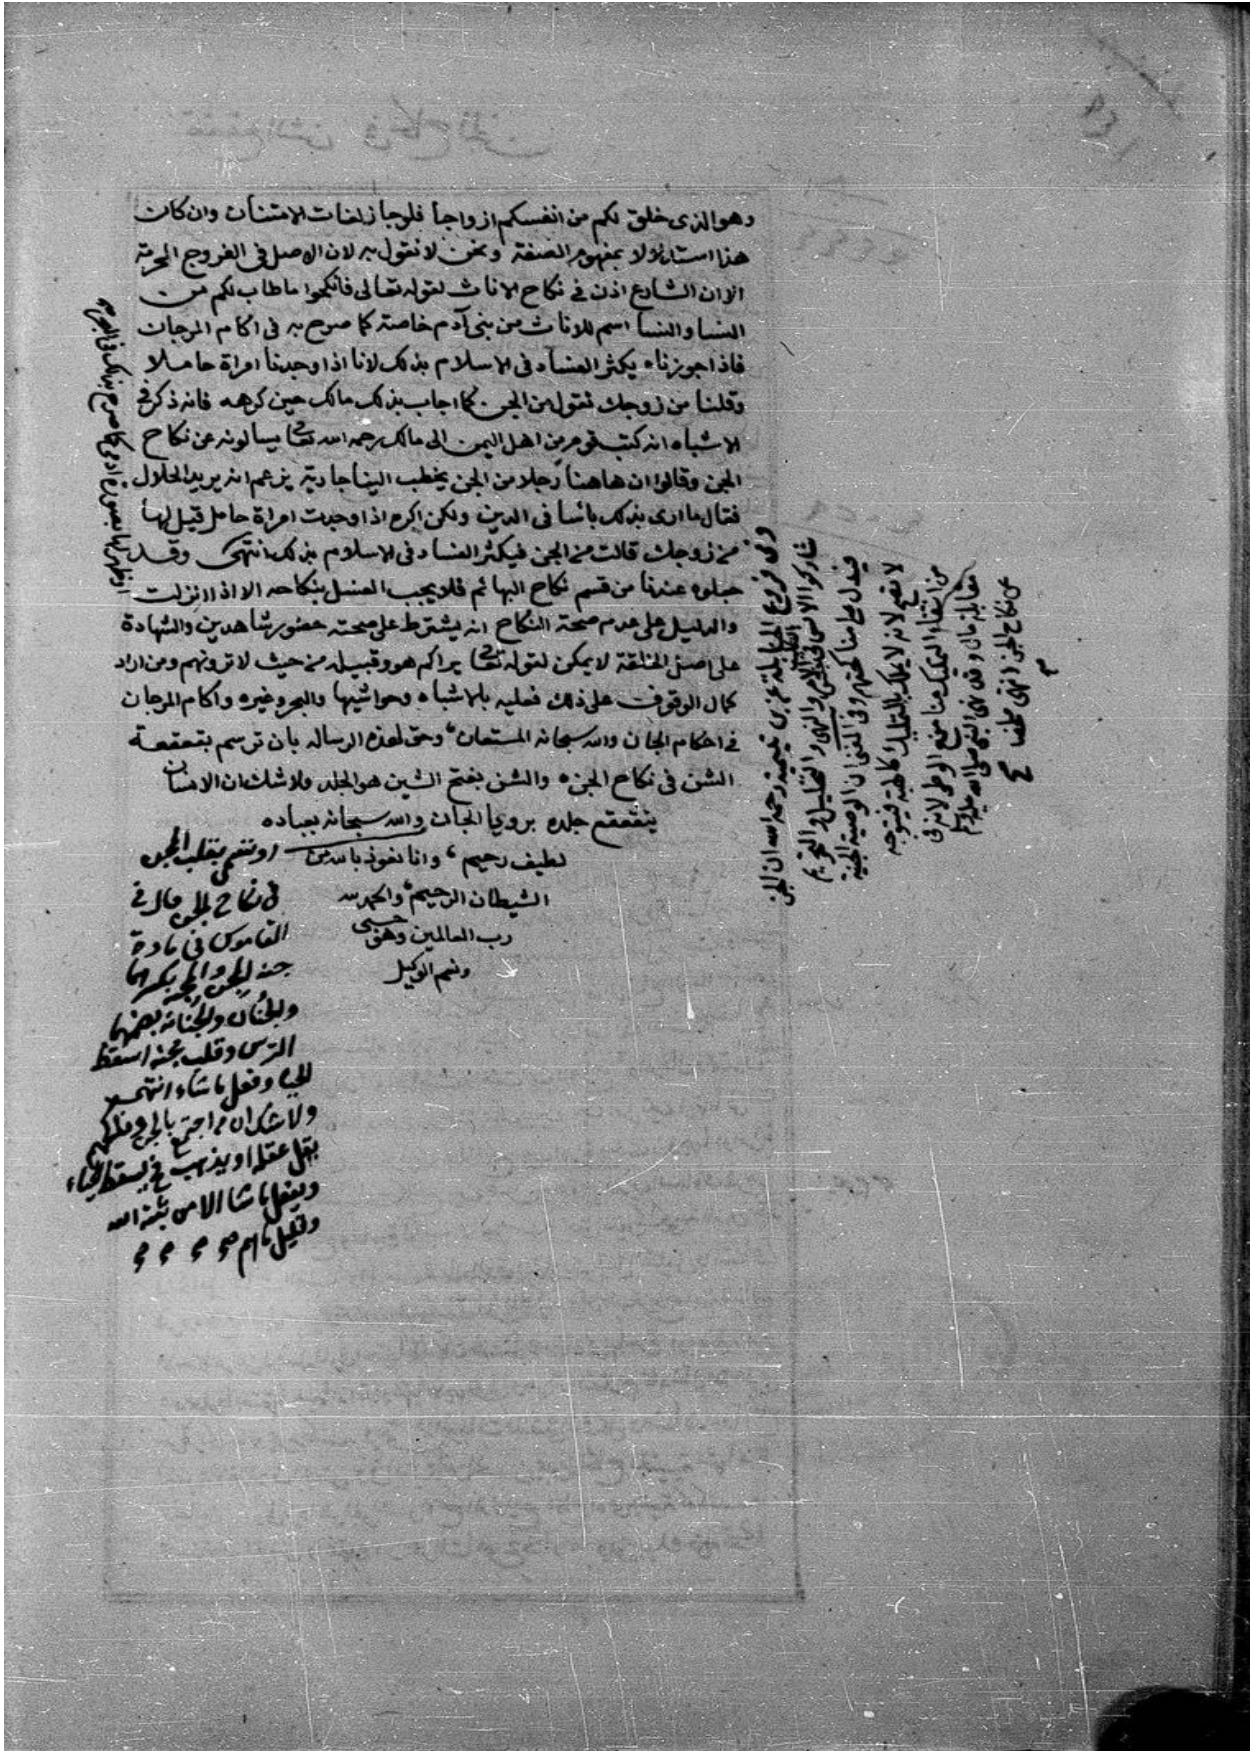 وهو الذي خلق لكم من انفسكم ازواجا فلو جاز لفات الامتنان وان كان
هذا استدلالا بمفهوم الصفة ونحن لا نقول به لان الاصل في الفروج الحرمة
الا ان الشارع اذن في نكاح الاناث لقوله تعالى فانكحوا ما طاب لكم من
النسا والنسا اسم للاناث من بني آدم خاصة كما صرح به في آكام المرجان
فاذا جوزناه يكثر الفساد في الاسلام بذلك لانا اذا وجدنا امراة حاملا
وقلنا من زوجك تقول من الجن كما اجاب بذلك مالك حين كرهه فانه ذكر في
الاشباه انه كتب قوم من اهل اليمن الى مالك رحمه الله تعا يسالونه عن نكاح
الجن وقالوا ان هاهنا رجلا من الجن يخطب الينا جارية يزعم انه يريد الحلال
فقال ما ارى بذلك بائسا في الدين ولكن اكره اذا وجدت امراة حامل قيل لها
من زوجك قالت من الجن فيكثر الفساد في الاسلام بذلك انتهى وقد
جعلوه عندنا من قسم نكاح البهائم فلا يجب الغسل بنكاحه الا اذا انزلت
والدليل على عدم صحة النكاح انه يشترط على صحته حضور شاهدين والشهادة
على اصل الخلقة لا يمكن لقوله تعا يراكم هو وقبيله من حيث لا ترونهم ومن اراد
كمال الوقوف على ذلك فعليه بالاشباه وحواشيها والبحر وغيره وآكام المرجان
في احكام الجان والله سبحانه المستعان وحق لهذه الرساله بان ترسم بتقعقعة
الشن في نكاح الجن والشن بفتح الشين هو الجلد فلا شك ان الانسان
يتقعقع جلده بروايا الجان والله سبحانه بعباده
لطيف رحيم وانا نعوذ بالله من
الشيطان الرجيم والحمد لله
رب العالمين وهو حسبي
ونعم الوكيل
او تسمى بقلب المجن
في نكاح الجن قال في
القاموس في مادة
جنه الجن والمجنة بكسرهما
والجنان والجنانة بضمهما
الترس وقلب مجنه اسقط
الحيا وفعل ما شاء انتهى
ولا شك ان من اجتمع بالجن
يقل عقله او يذهب فيسقط الحياء
ويفعل ما شا الا من ثبته الله
وقليل ما هم
وفي فروع الحنابلة عن بن تيمية رحمه الله ان الجن
شاركوا الانس في جنس التكليف بالامر والنهي والتحليل والتحريم
فيدل على مناكحتهم وفي المغني ان الوصية للجني
لا تصح لانه لا يملك بالتمليك كالهبة فيتوجه
من انتفاء التمليك منا منع الوطء لانه في
مقابلة مال وقد نهى النبي صلى الله عليه وسلم
عن نكاح الجن انتهى ملخصا